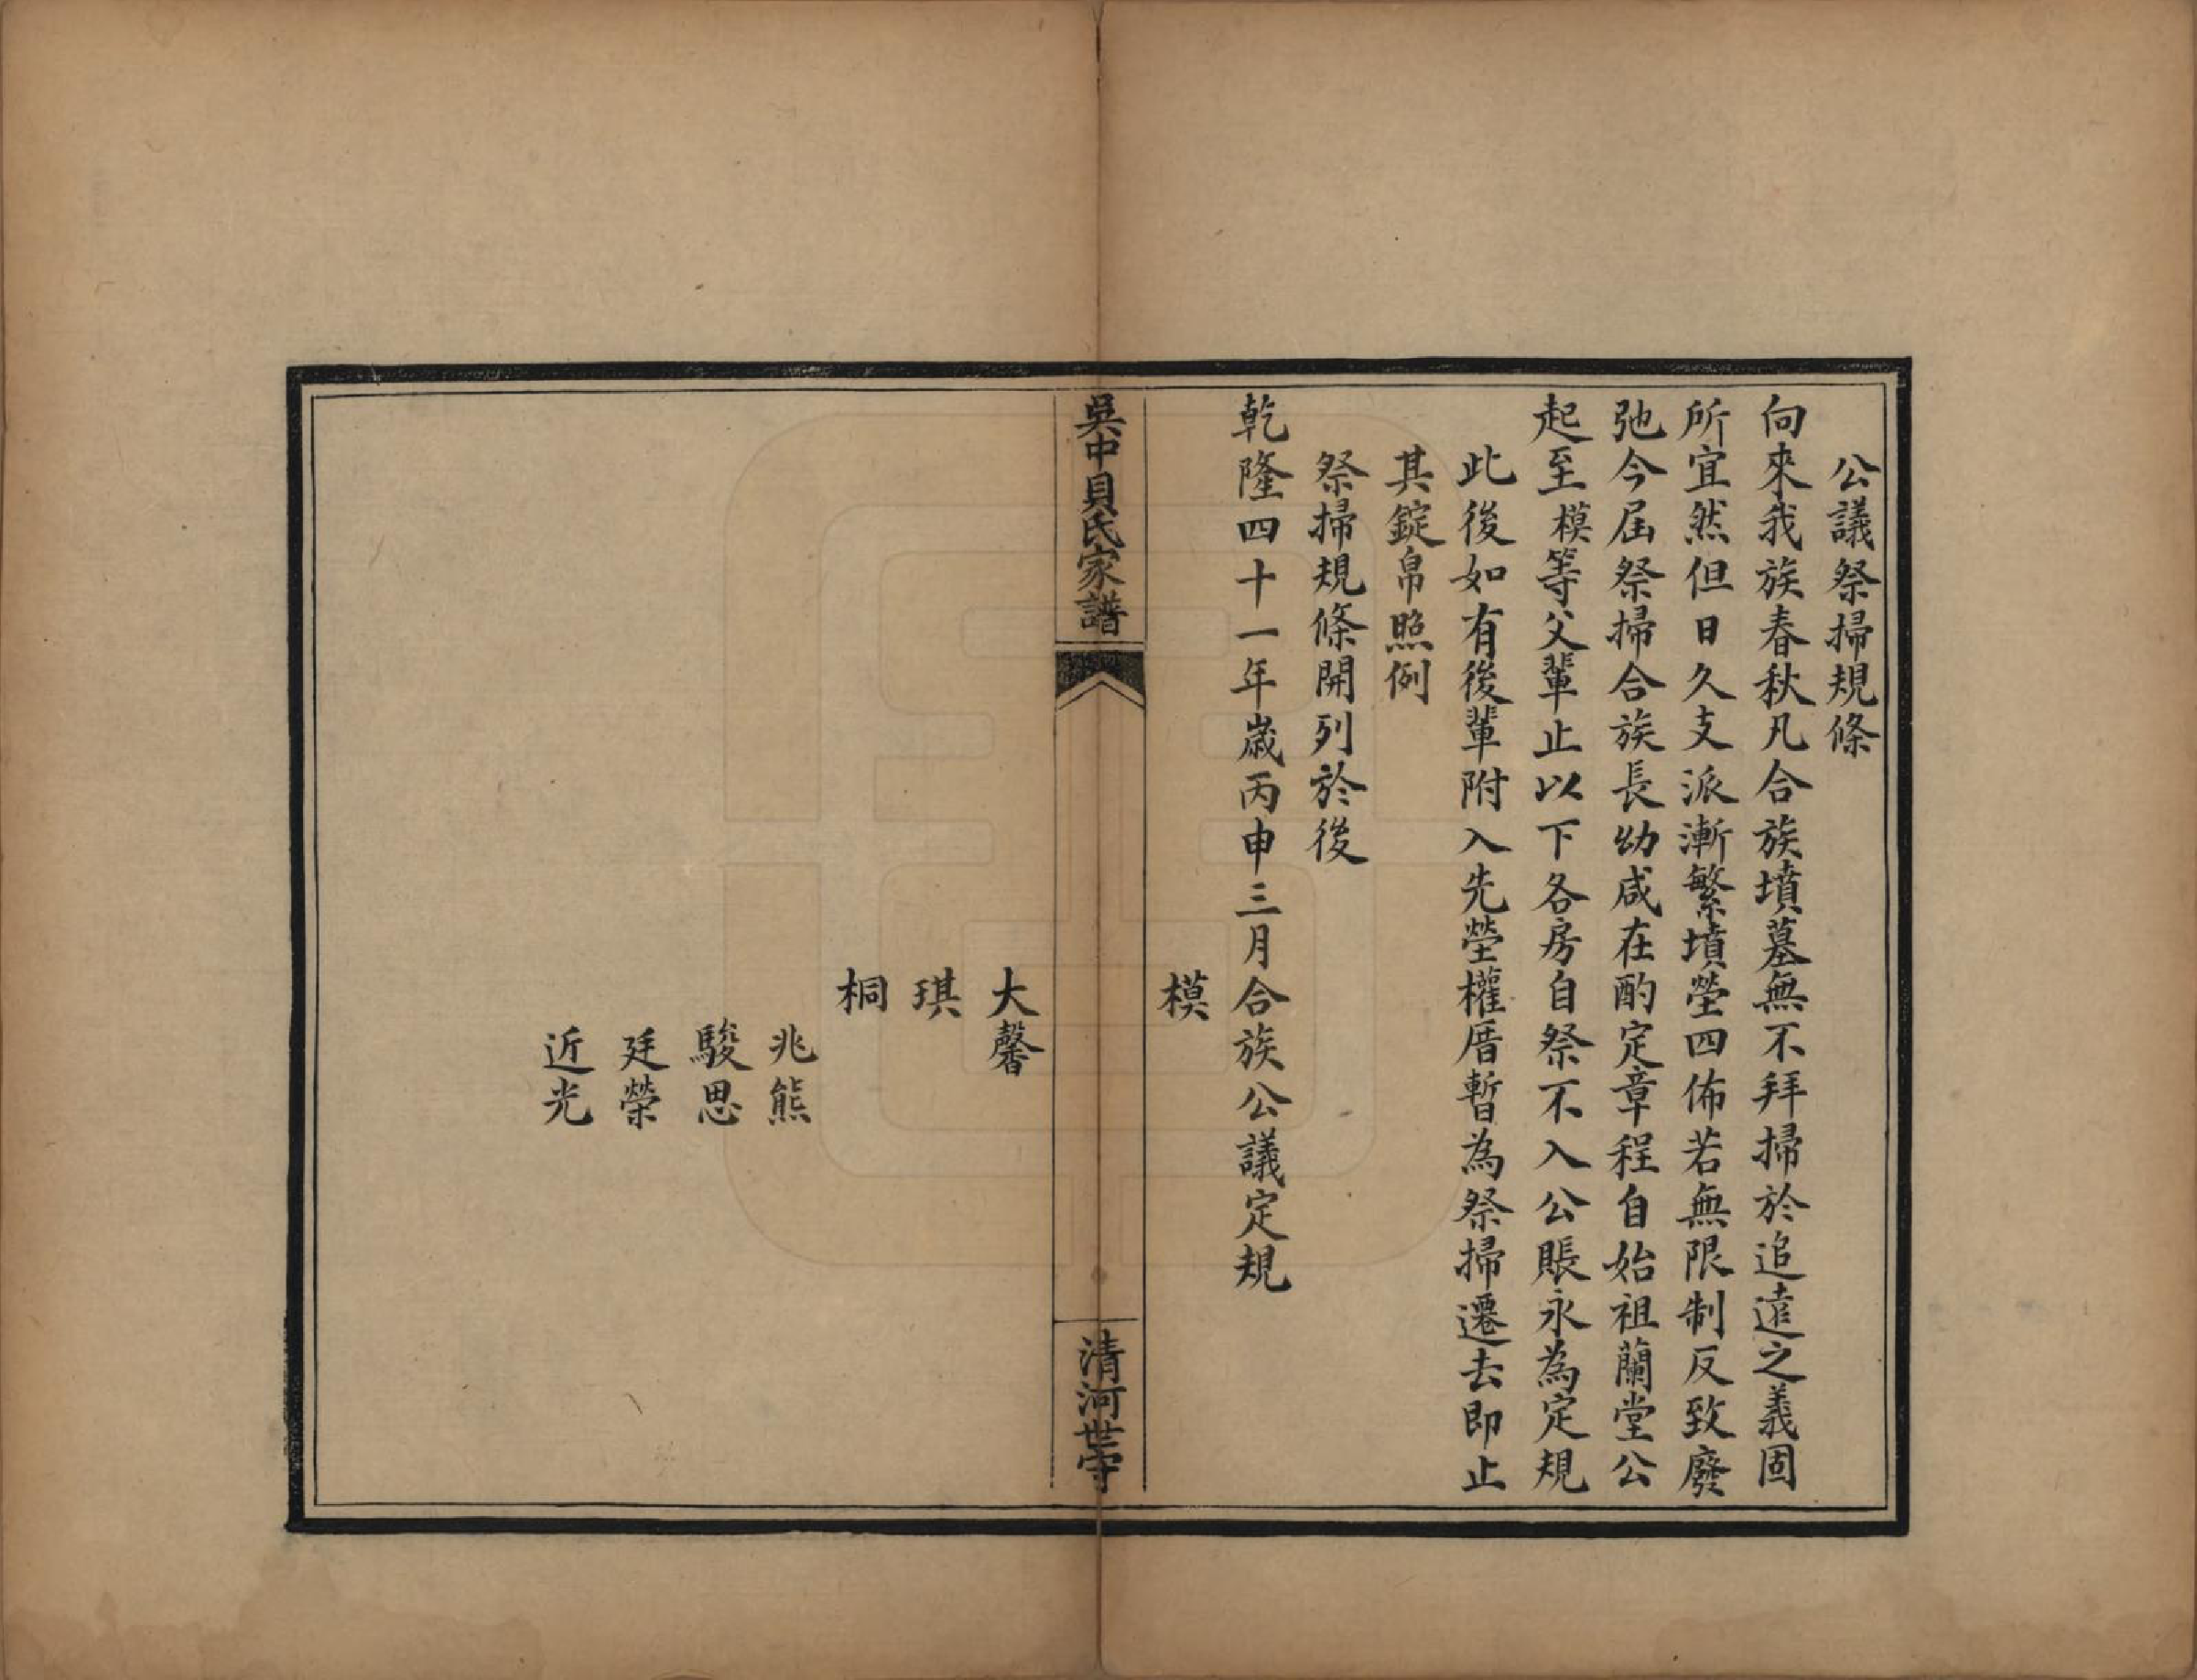 公議祭掃規條
向來我族春秋凡合族墳墓無不拜掃於追遠之義固
所宜然但日久支派漸繁墳塋四佈若無限制反致廢
弛今屆祭掃合族長幼咸在酌定章程自始祖蘭堂公
起至模等父輩止以下各房自祭不入公賬永為定規
此後如有後輩附入先塋權厝暫為祭掃遷去即止
其錠帛照例
祭掃規條開列於後
乾隆四十一年歲丙申三月合族公議定規
模
吳中貝氏家譜
清河世守
大馨
琪
桐
兆熊
駿思
廷榮
近光